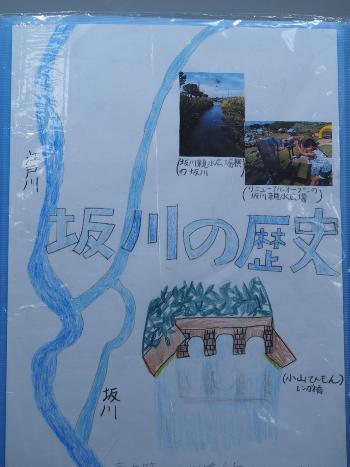 江戸川
(坂川親水広場横
の坂川)
(リニューアルオープンの
坂川親水広場)
坂川の歴史
坂川
(小山ひもん)
レンガ橋